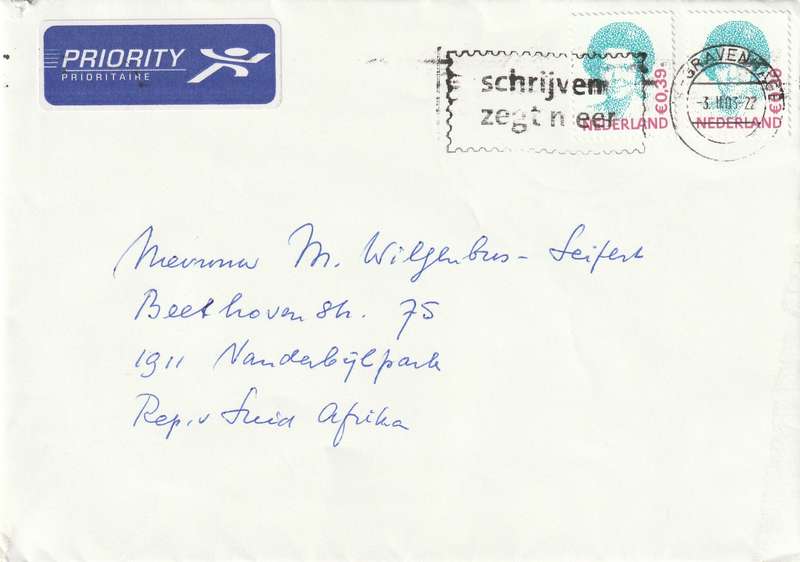 PRIORITY
PRIORITAIRE
schrijven
zegt meer
€0,39
NEDERLAND
€0,39
NEDERLAND
GRAVENHAGE
-3.II03-22
Mevrouw M. Wilgenbus-Seifert
Beethovenstr. 75
1911 Vanderbijlpark
Rep. v Suid Afrika